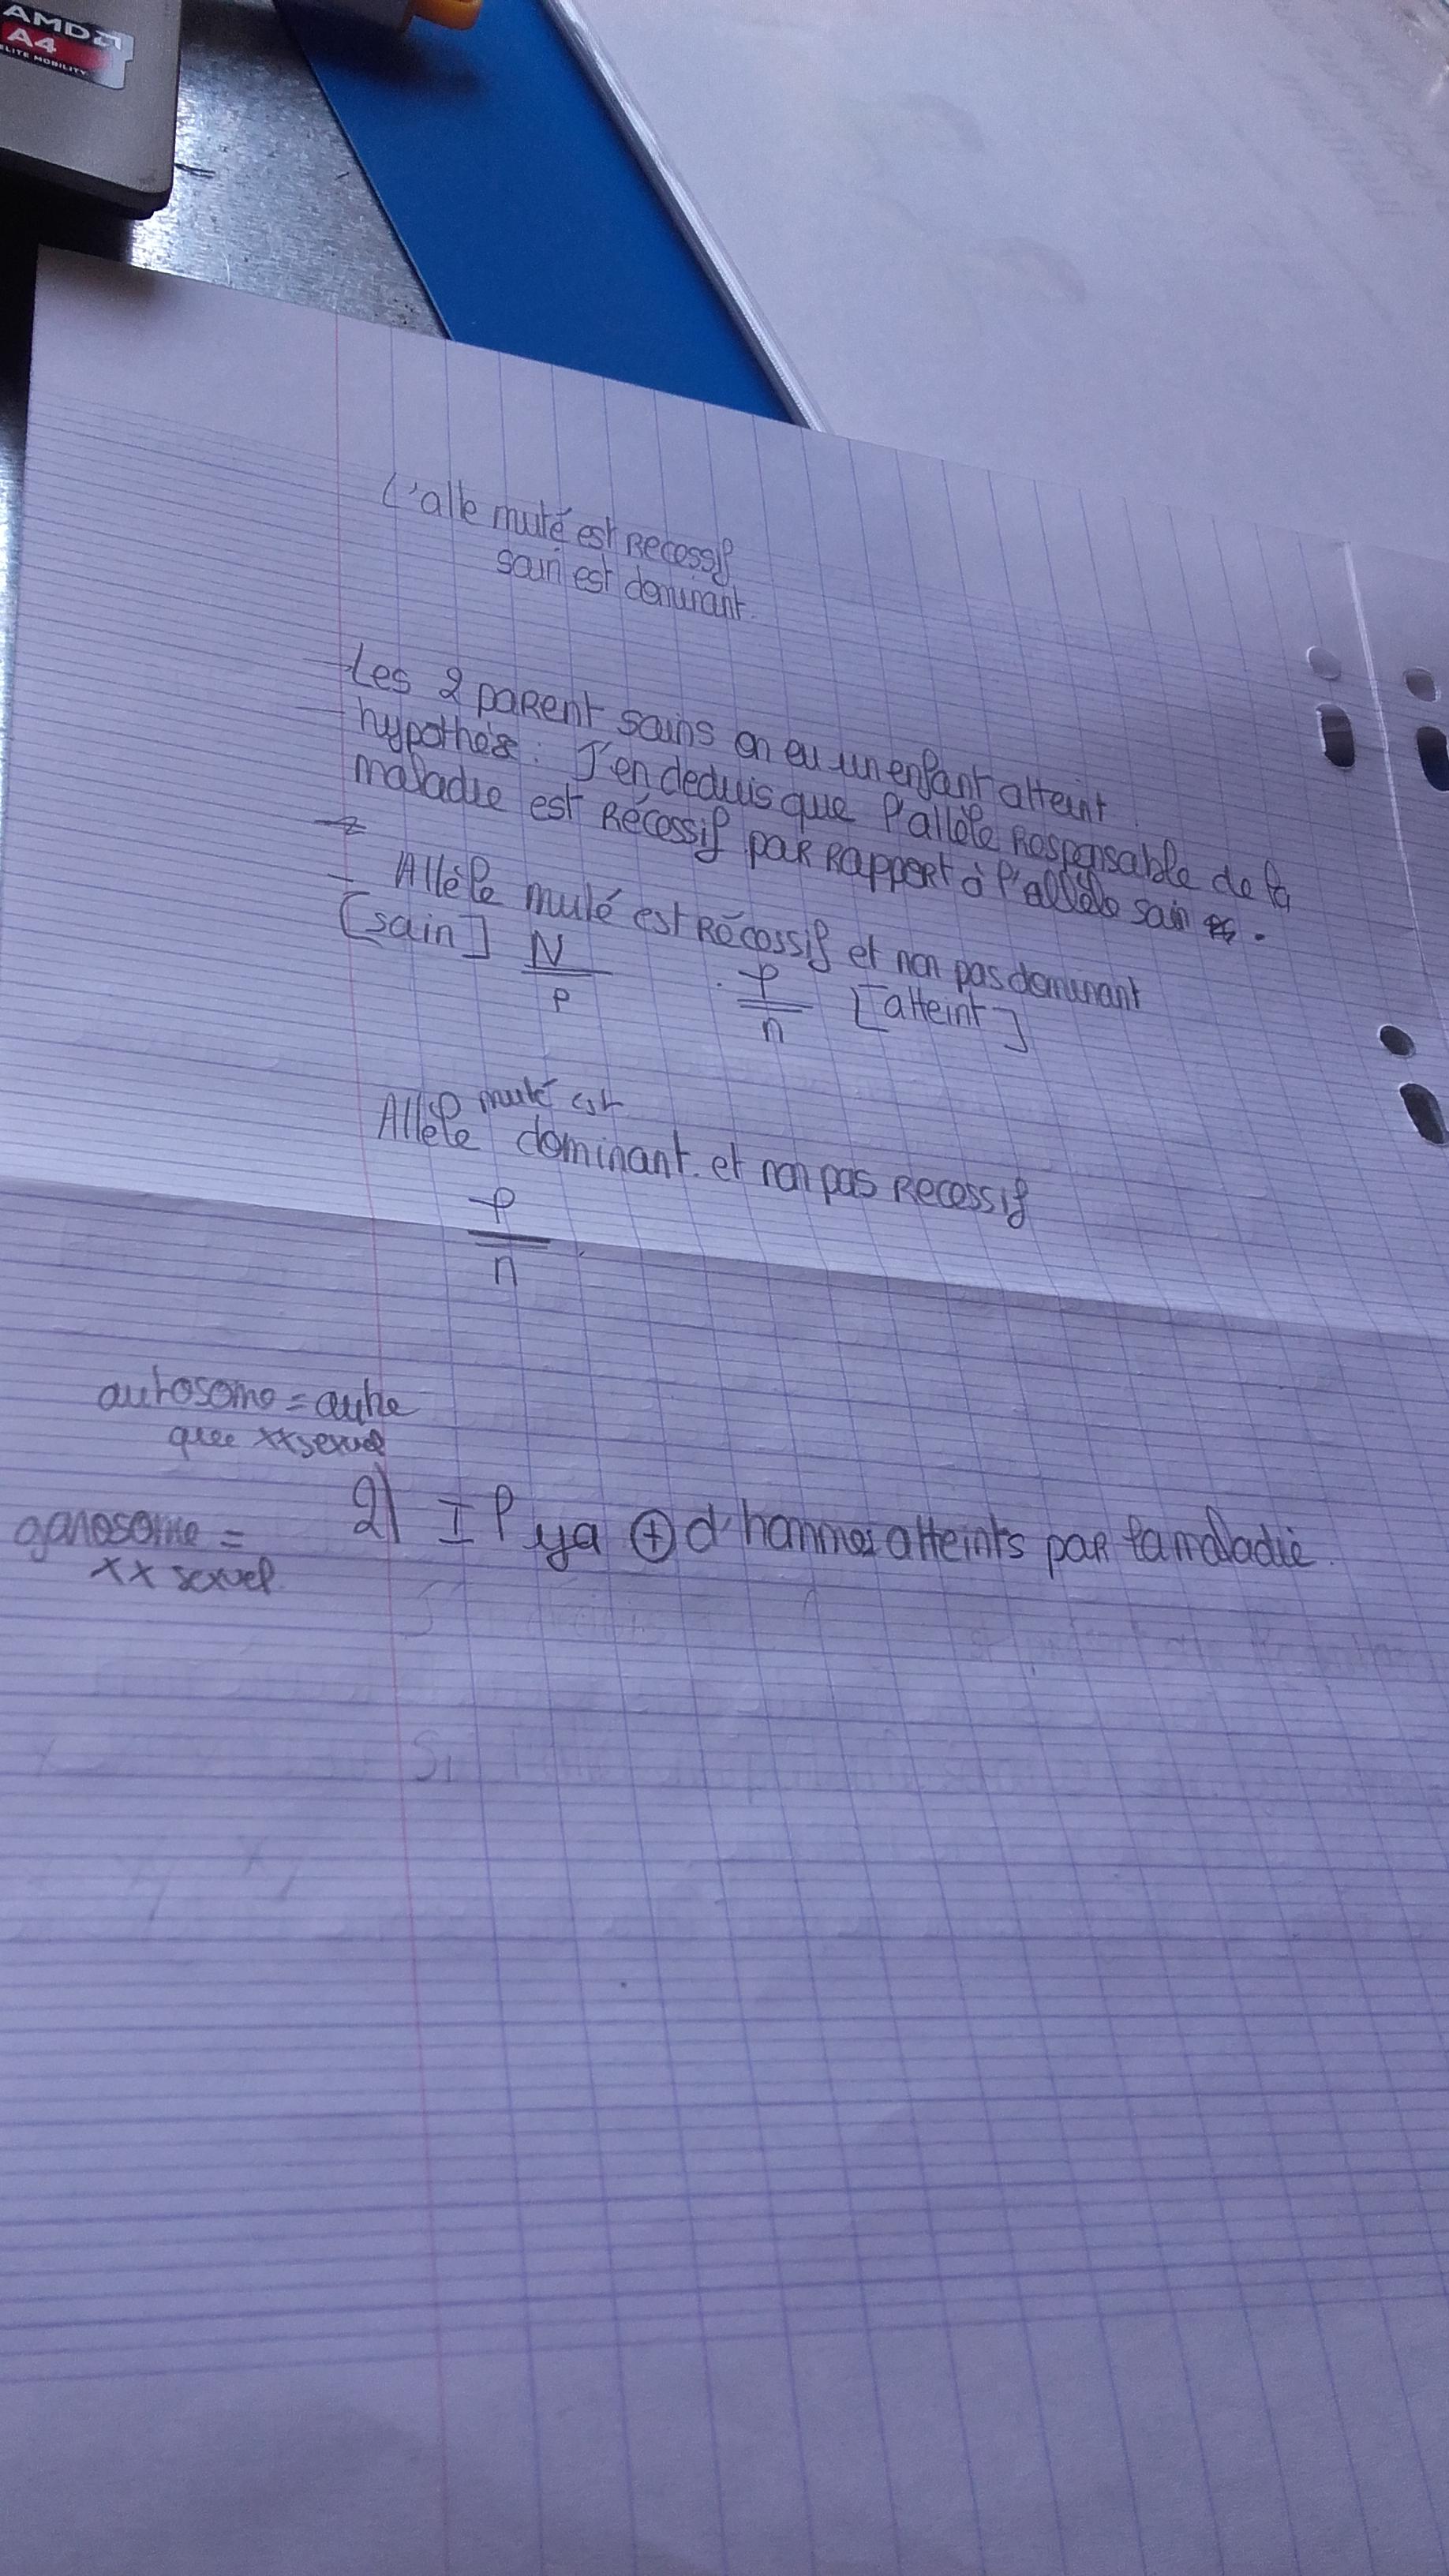 AMD
A4
ELITE MOBILITY
L'alle muté est Recessif
sain est dominant.
- Les 2 paRent sains on eu un enfant atteint.
- hypothès : J'en deduis que l'allèle Responsable de la
maladie est Récessif paR Rapport à l'allèle sain .
- Allèle muté est Récessif et non pas dominant
[sain] N
p
p
n [atteint]
muté est
Allèle dominant. et non pas Recessif
p
n
autosome = autre
que xx sexuel
gonosome =
xx sexuel
2) Il ya + d'hommes atteints paR la maladie.
Si